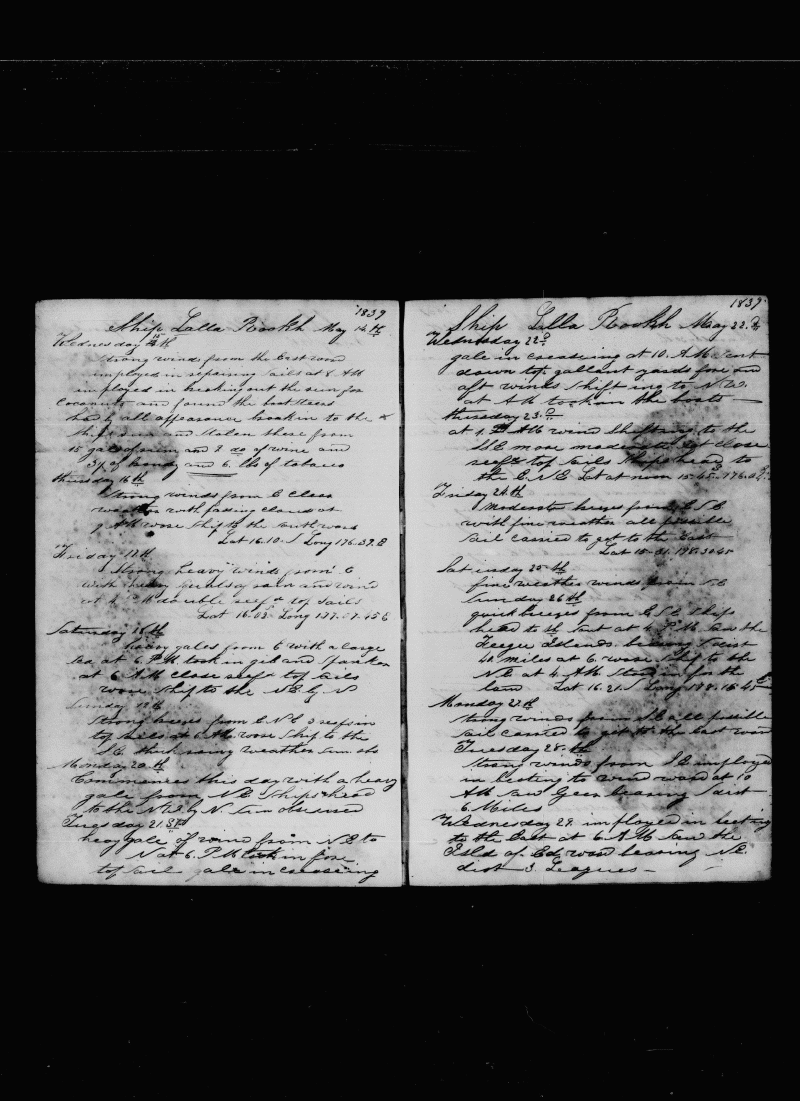 1839
Ship Lalla Rookh May 15th
Wednesday 15th
Strong winds from the Eastward
employed in repairing sails at 8 AM
imployed in breaking out the run for
Coconuts and found the boatsteers
had by all appearance broaken in to the
run and stolen there from
15 galls of rum and 2 do of wine and
of brandy and 6 lbs of tobacco
thursday 16th
Strong winds from E Clear
weather with passing clouds at
9 AM wore ship to the southward
Lat 16.10 S Long 176.39 E
Friday 17th
Strong heavy winds from E
with heavy squalls of rain and wind
at PM double reefd top sails
Lat 16.03 Long 177.07.45 E
Saturday 18th
heavy gales from E with a large
sea at 6 PM took in gib and spanker
at 6 AM close reefd top sails
wore ship to the NE by N
Sunday 19th
Strong breezes from ENE 3 reefs in
top sails at 6 AM wore ship to the
SE thick rainy weather sun obs
Monday 20th
Commences this day with a heavy
gale from NE ships head
to the NW by N. Sun obscured
Tuesday 21st
heavy gale of wind from NE to
N at 6 PM took in fore
top sail gale increaseing
1839
Ship Lalla Rookh May 22d
Wednesday 22d
gale in creaseing at 10 AM sent
down top gallant yards fore and
aft winds shift ing to NW
at AM took in the boats
thursday 23d
at 1 AM wind shifting to the
SSE more moderate set close
reefd top sails ships head to
the ENE Lat at noon 15.45 S 176.
Friday 24th
Moderate breezes from ESE
with fine weather all possible
sail carried to get to the East
Lat 15.31 178.30.45
Saturday 25th
fine weather winds from SE
Sunday 26th
quick breezes from ESE ships
head to the at 4 PM saw the
Feegee Islands bearing S dist
40 miles at 6 wore ship to the
NE at 4 AM stood in for the
land Lat 16.21 S Long 178.16.45 E
Monday 27th
Strong winds from SE all possible
sail carried to get to the east ward
Tuesday 28th
Strong winds from SE imployed
in beeting to wind ward at 10
AM saw bearing S dist
6 Miles
Wednesday 29 imployed in beeting
to the East at 6 AM saw the
Isld of bearing NE
dist 3 Leagues